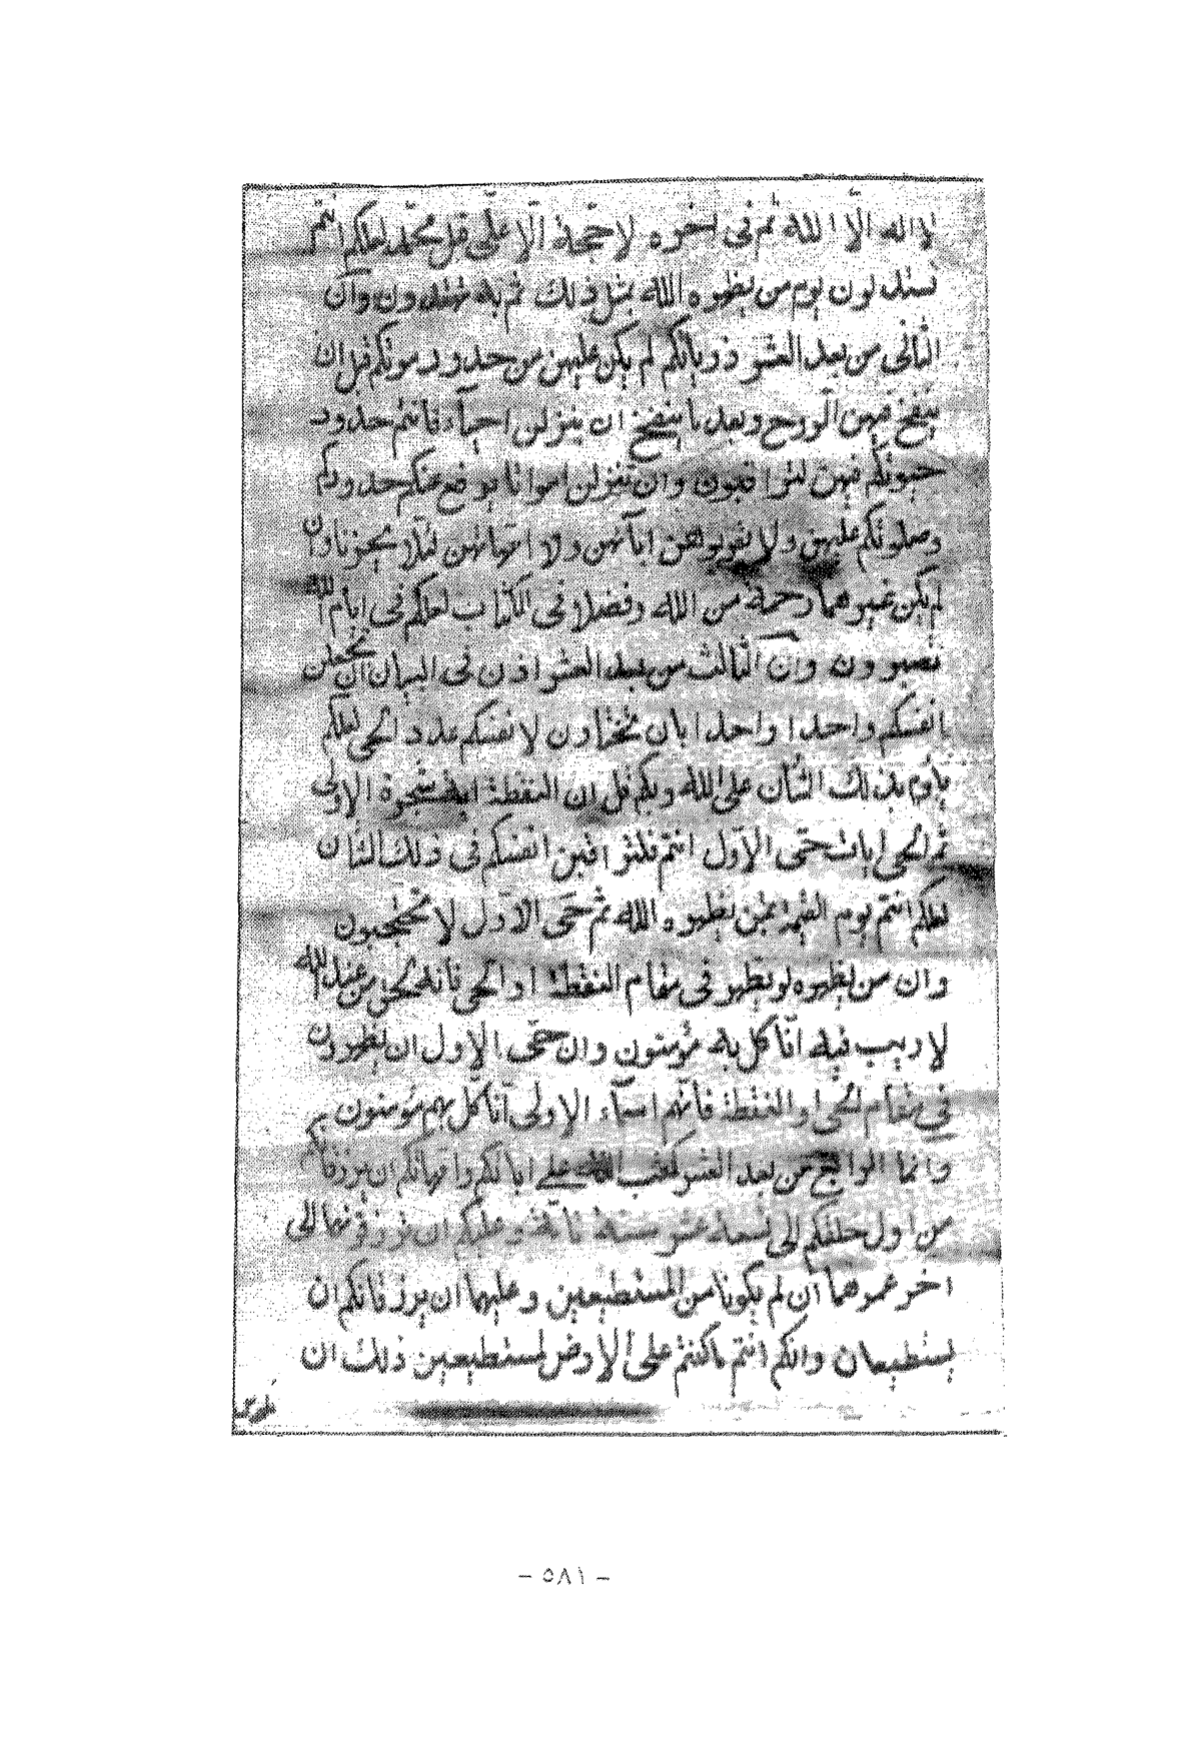 لا اله الّا الله ثم فى اخره لا حجة الّا على قبل محمد لعلكم انتم
تستدلون يوم من يظهره الله بمثل ذلك ثم به تهتدون وان
الثانى من بعد العشر ذرياتكم لم يكن عليهن من حدود موتكم قبل ان
ينفخ فيهن الروح وبعد ما ينفخ ان ينزلن احياء فانتم حدود
حيوتكم فيهن لتراقبون وان تنزلن امواتا يرفع عنكم حدودكم
وصلوتكم عليهن ولا يقربوا هن ابائهن ولا امهاتهن لئلا يحزنا وان
لم يكن غيرهما رحمة من الله وفضلا فى الكتاب لعلكم فى ايام الله
تصبرون وان الثالث من بعد العشر اذن فى البيان ان تجعلن
انفسكم واحدا واحدا بان تختارون لانفسكم عدد الحى لعلكم
بذلك الشان على الله ربكم قل ان النقطة اية شجرة الاولى
ثم الحى ايات حى الاول انتم فلتراقبن انفسكم فى ذلك الشان
لعلكم انتم يوم القيمة بمن يظهره الله ثم حى الاول لا تحتجبون
وان من يظهره لو يظهر فى مقام النقطة او الحى فانه لحق من عند الله
لا ريب فيه انّا كل به مؤمنون وان حى الاول ان يظهرون
فى مقام الحى او النقطة فانهم اسماء الاولى انّا كل بهم مؤمنون
وانما الرابع من بعد العشر كتب الله على ابائكم وامهاتكم ان يرزقانكم
من اول خلقكم الى تسعة عشر سنة عليكم ان ترزقونهما الى
اخر عمرهما ان لم يكونا من المستطيعين وعليهما ان يرزقانكم ان
يستطيعان وانكم انتم ما كنتم على الارض لمستطيعين ذلك ان
- ٥٨١ -